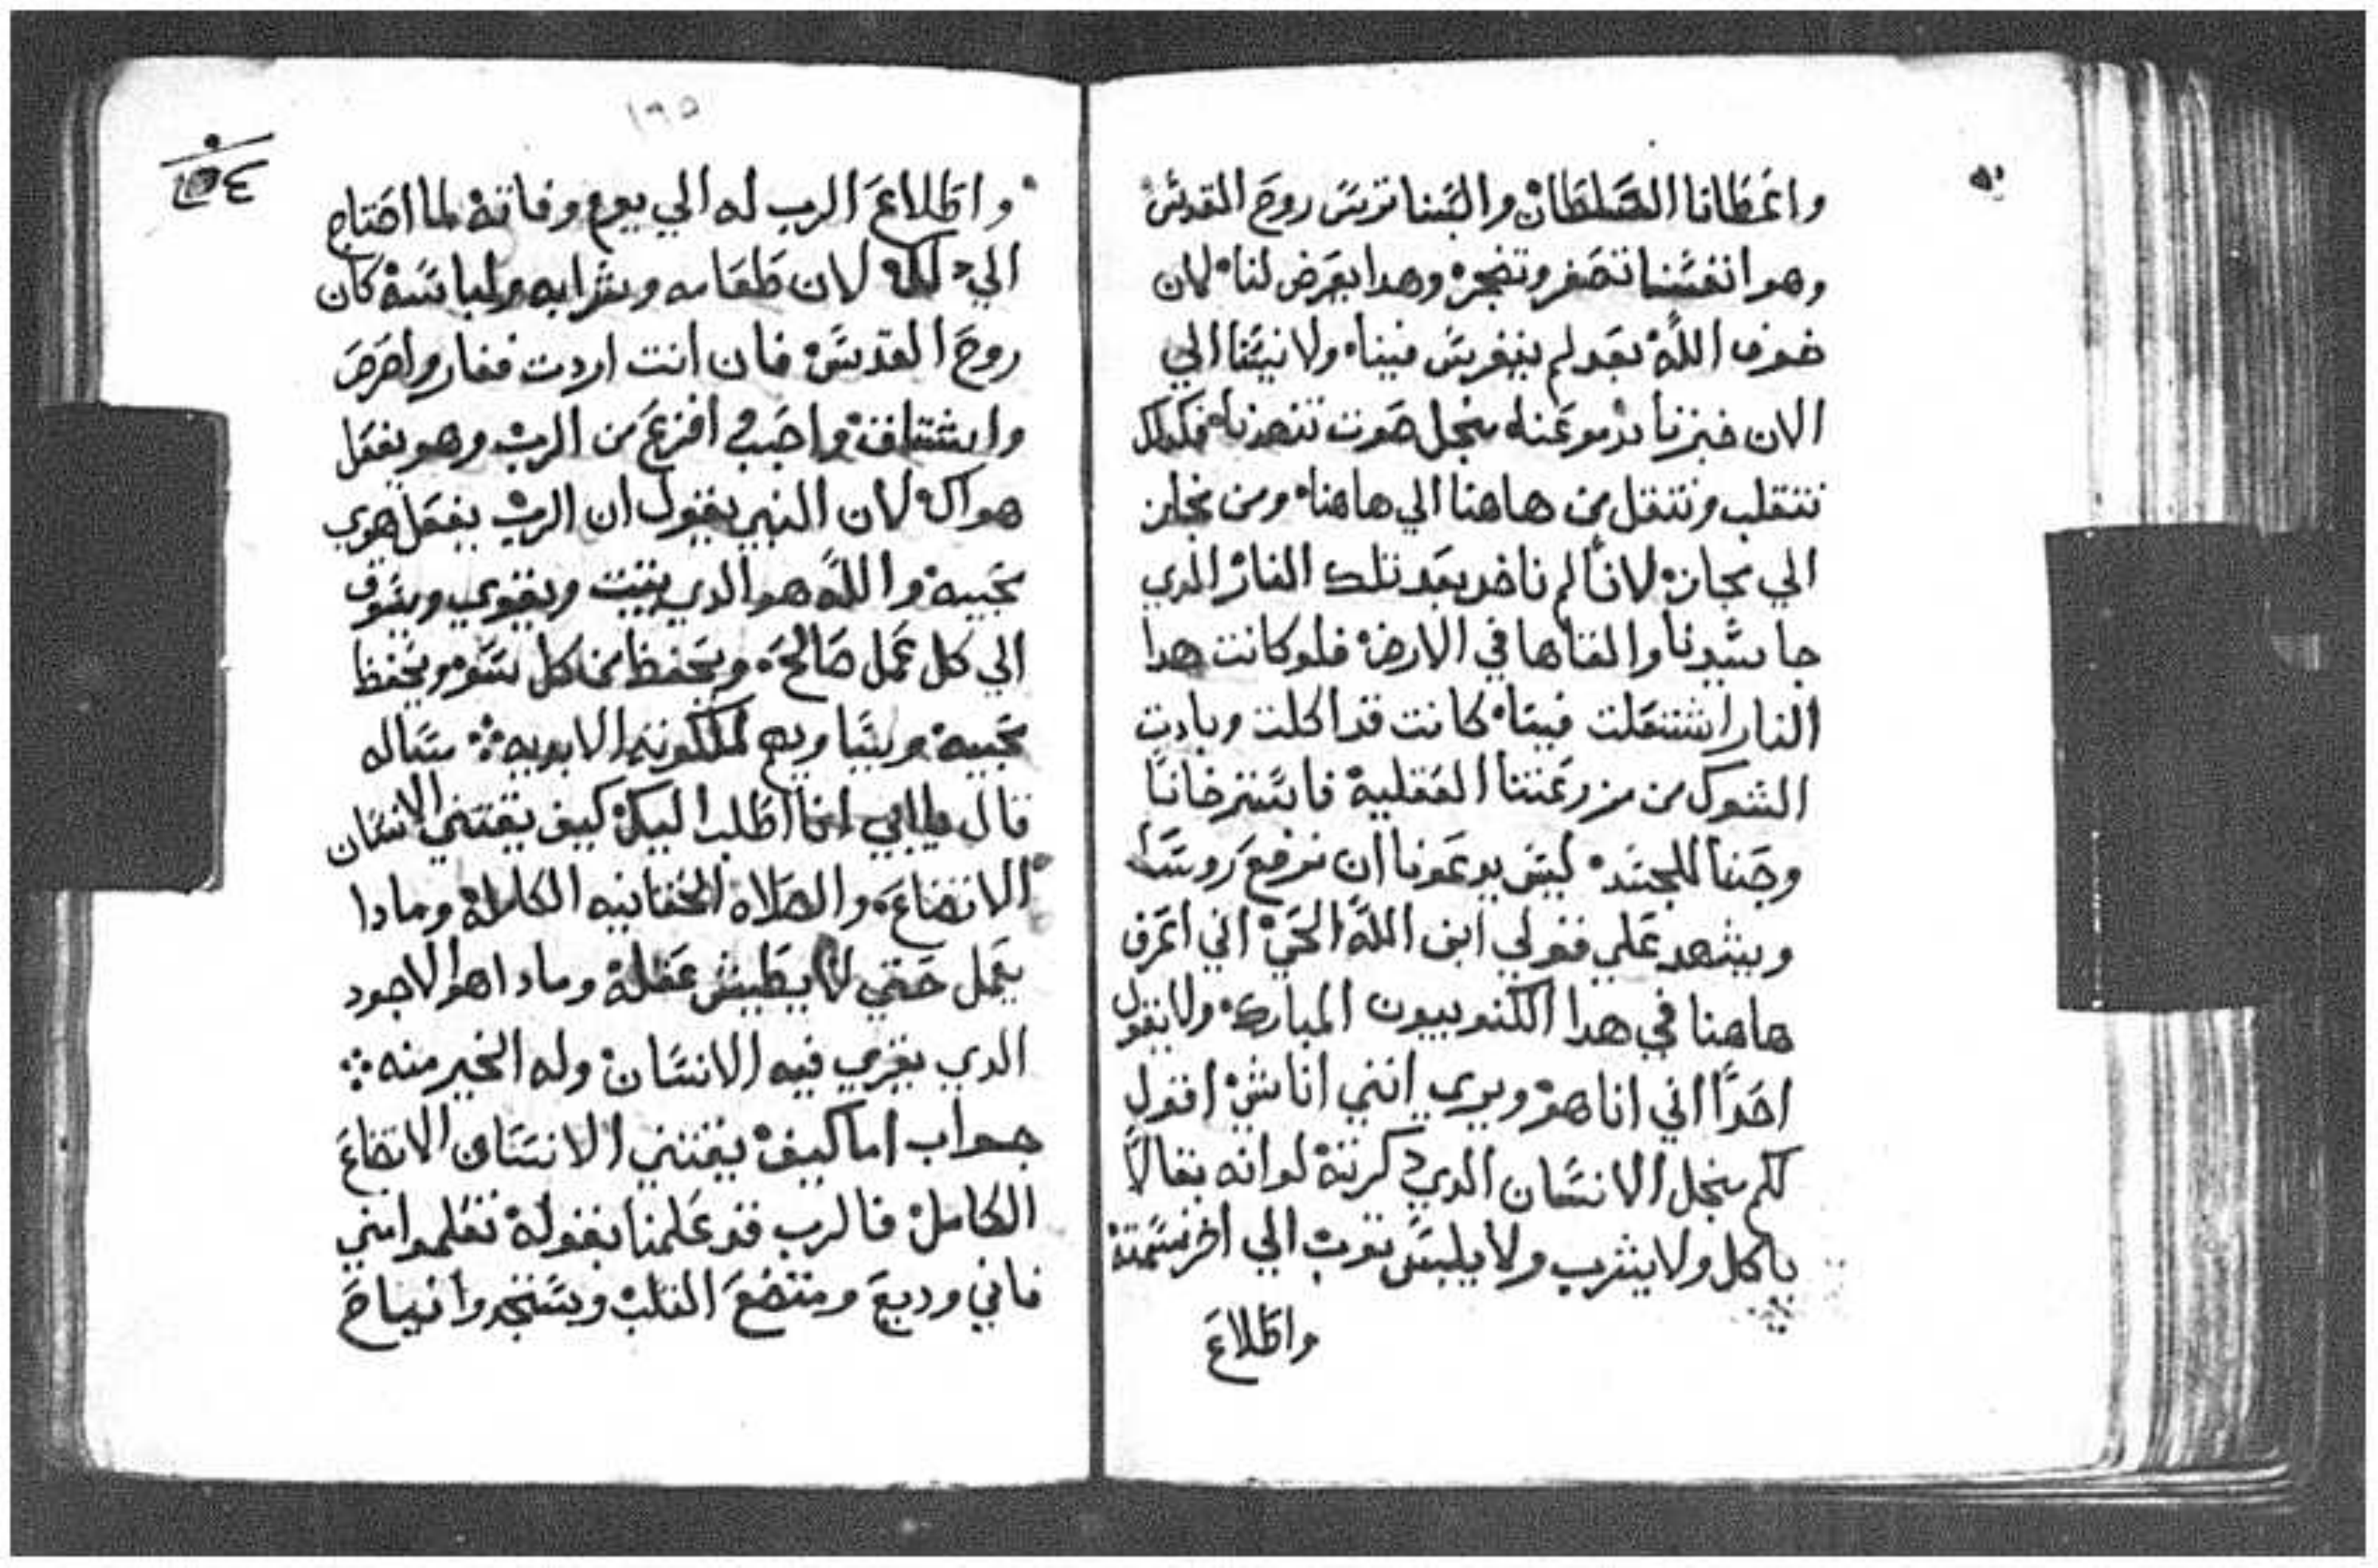 واعطانا السلطان والبسنا ترس روح القدس
وهو انفسنا تصغر وتضجر وهدا يعرض لنا لان
خوف الله بعد لم ينغرس فينا ولا نيتنا الي
الان خبزنا دموعنا من اجل صوت تنهدنا فكدلك
نتقلب وننتقل من هاهنا الي هاهنا ومن مجاز
الي مجاز لاننا لم ناخد بعد تلك النار الدي
جا سيدنا والقاها في الارض فلو كانت هدا
النار اشتعلت فينا كانت قد اكلت وبادت
الشوك من مزرعتنا العقلية فاسترخانا
وحبنا للجسد ليس يدعونا ان نرفع روسنا
ويشهد علي قولي ابن الله الحي اني اعرف
هاهنا في هدا الكنوبيون المبارك ولا يقول
احدا اني انا هو ويري انني اناش اقول
لكم من اجل الانسان الدي دكرته لو انه بقا لا
ياكل ولا يشرب ولا يلبس توب الي اخر نسمته
واطلاع
١٩٥
واطلاع الرب له الي يوم وفاته لما احتاج
الي دلك لان طعامه وشرابه ولباسه كان
روح القدس فان انت اردت فغار واحرص
واشتاق واحب في افزع من الرب وهو يفعل
هواك لان النبي يقول ان الرب يفعل هوي
محبيه والله هو الدي يثبت ويقوي ويسوق
الي كل عمل صالح ويحفظ من كل سو ويحفظ
محبيه لملكوته الابويه سئاله
قال يا ابي انا اطلب اليك كيف يقتني الانسان
الاتضاع والصلاة الحقانيه الكامله ومادا
يعمل حتي لا يطيش عقله ومادا هو الاجود
الدي يقري فيه الانسان وله الخير منه
جواب اما كيف يقتني الانسان الاتضاع
الكامل فالرب قد علمنا بقوله تعلموا مني
فاني وديع ومتضع القلب وستجدوا نياح